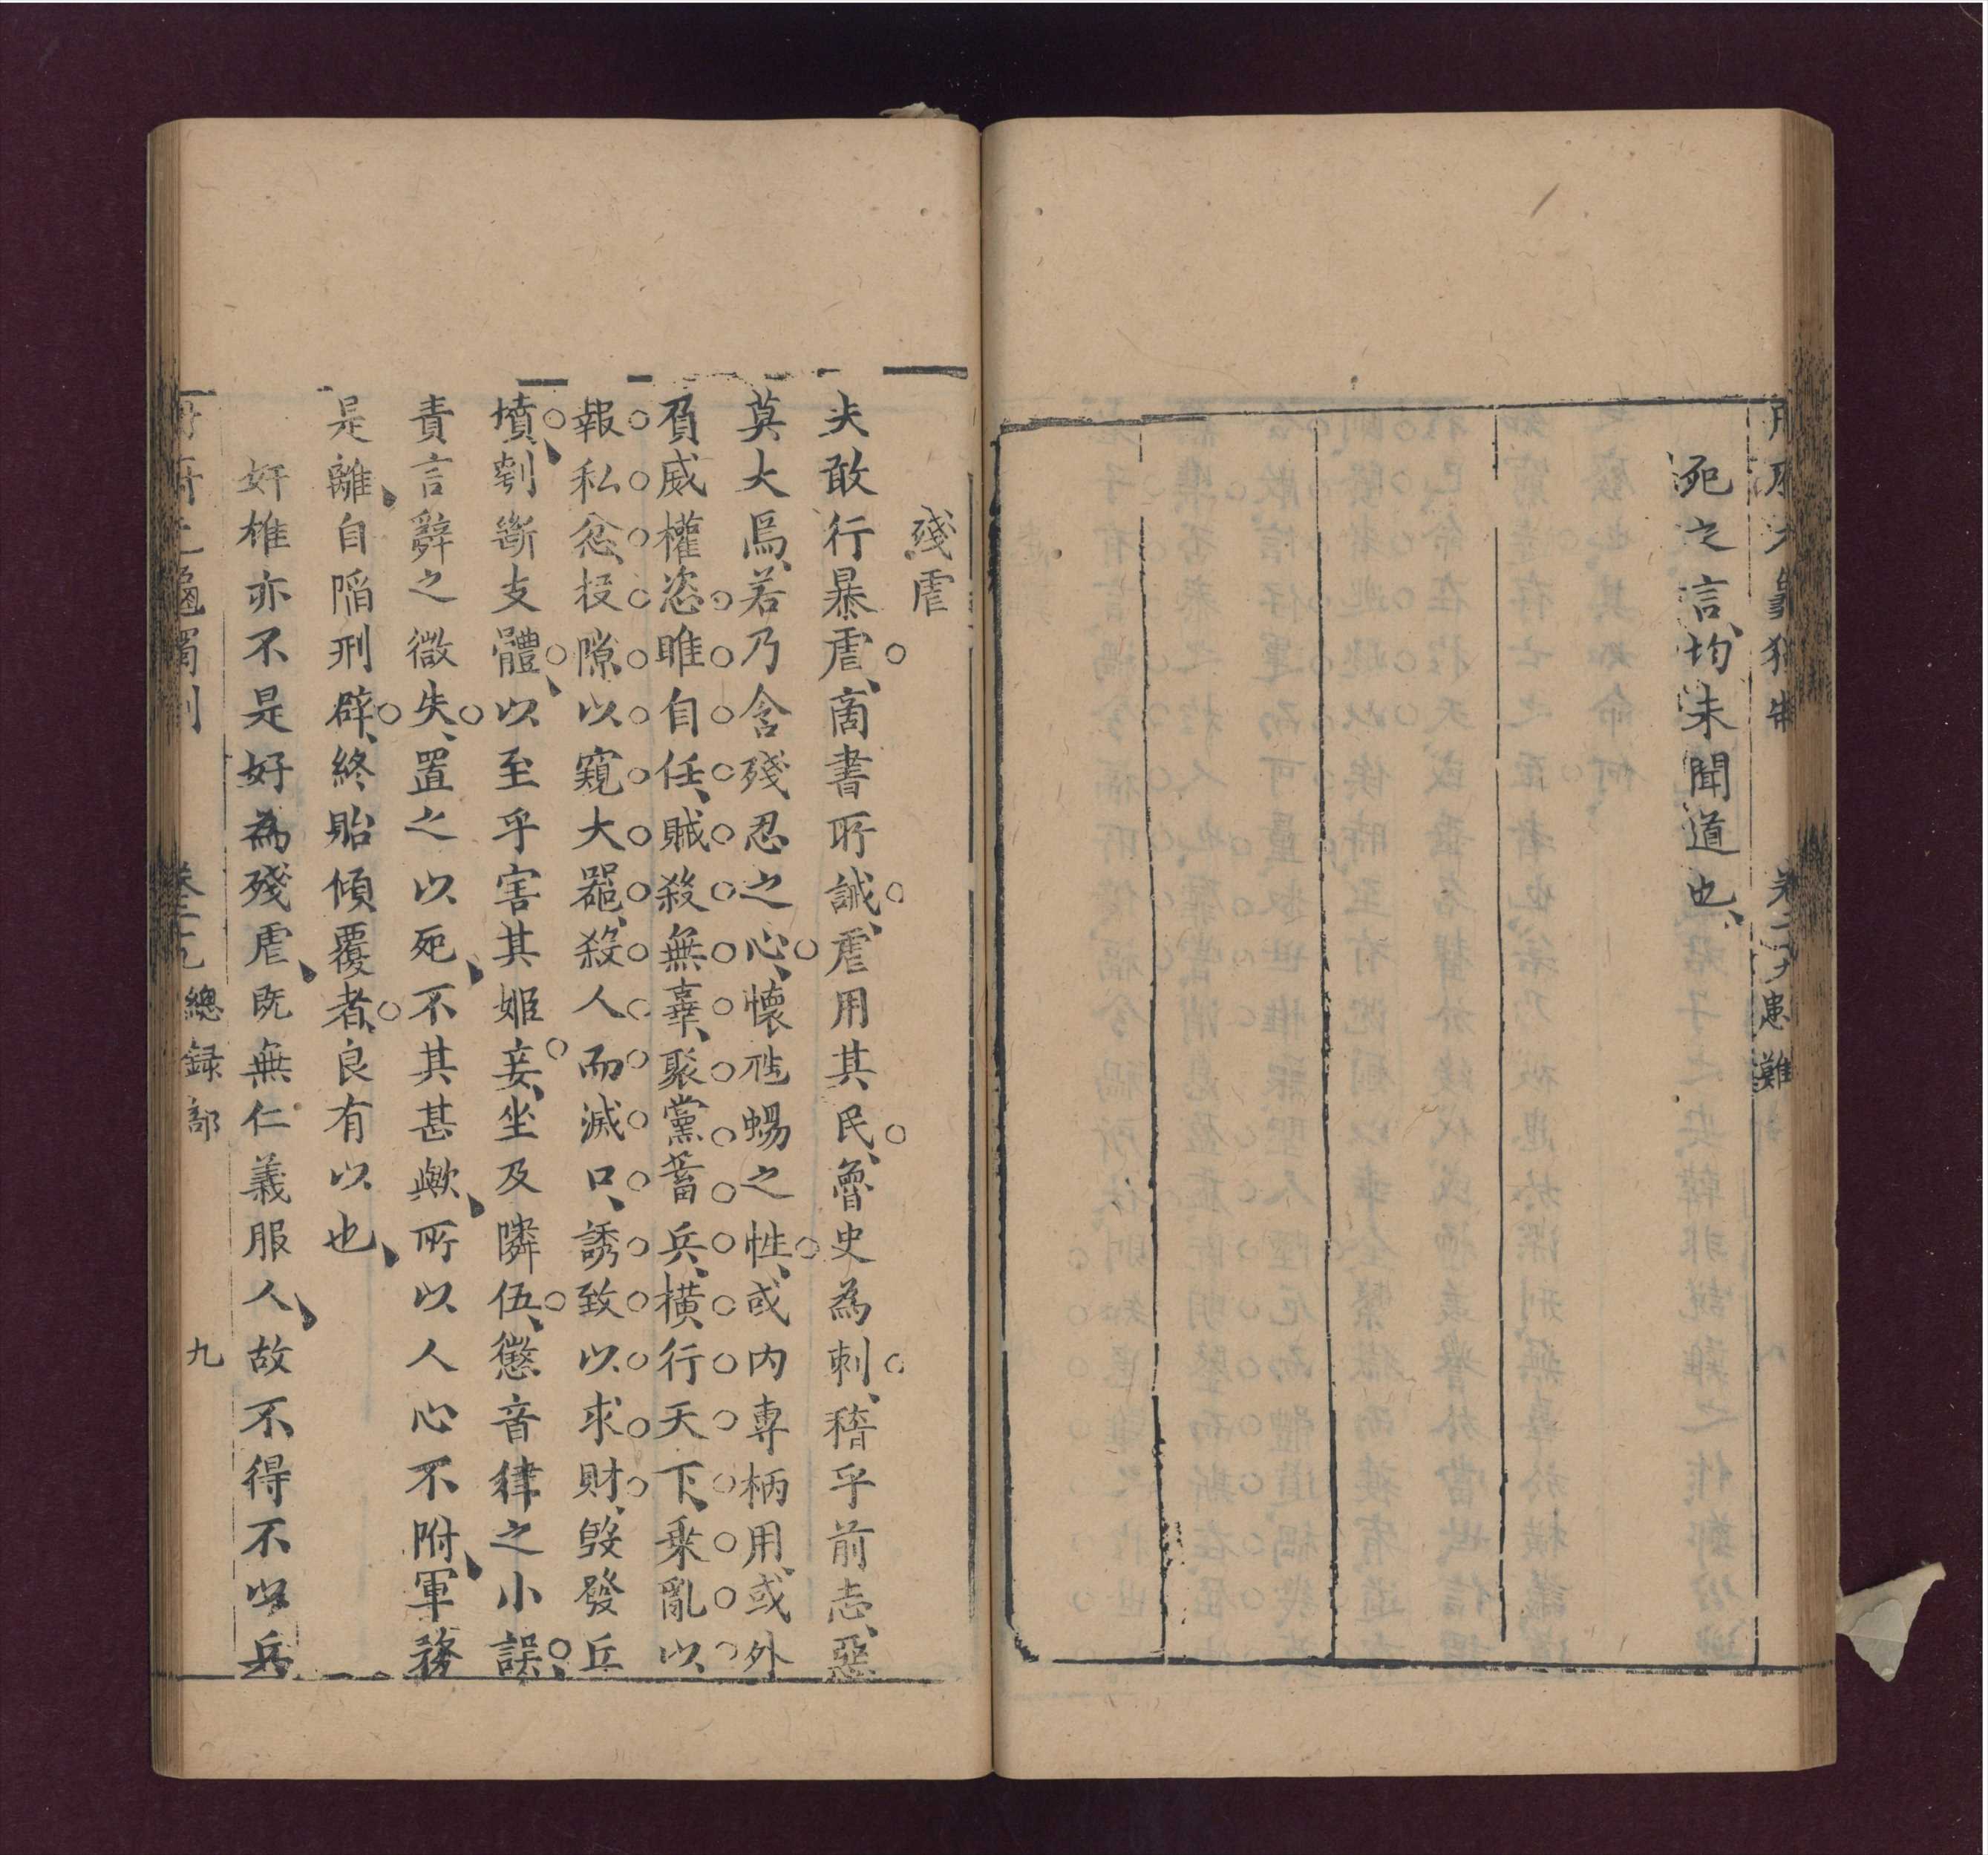 死之言、均未聞道也、
卷二十九 患難
殘虐
夫敢行暴虐、商書所誡、虐用其民、魯史為刺、稽乎前志、惡
莫大焉、若乃含殘忍之心、懷虺蜴之性、或内專柄用、或外
負威權恣睢自任、賊殺無辜、聚黨蓄兵、横行天下、乘亂以
報私忿、投隙以窺大器、殺人而滅口、誘致以求財、毀發丘
墳、刳斮支體、以至乎害其姬妾、坐及隣伍、懲音律之小誤、
責言辭之微失、置之以死、不其甚歟、所以人心不附、軍務
是離、自陷刑辟、終貽傾覆者、良有以也、
奸雄亦不是好為殘虐、既無仁義服人、故不得不以兵
總録部 九